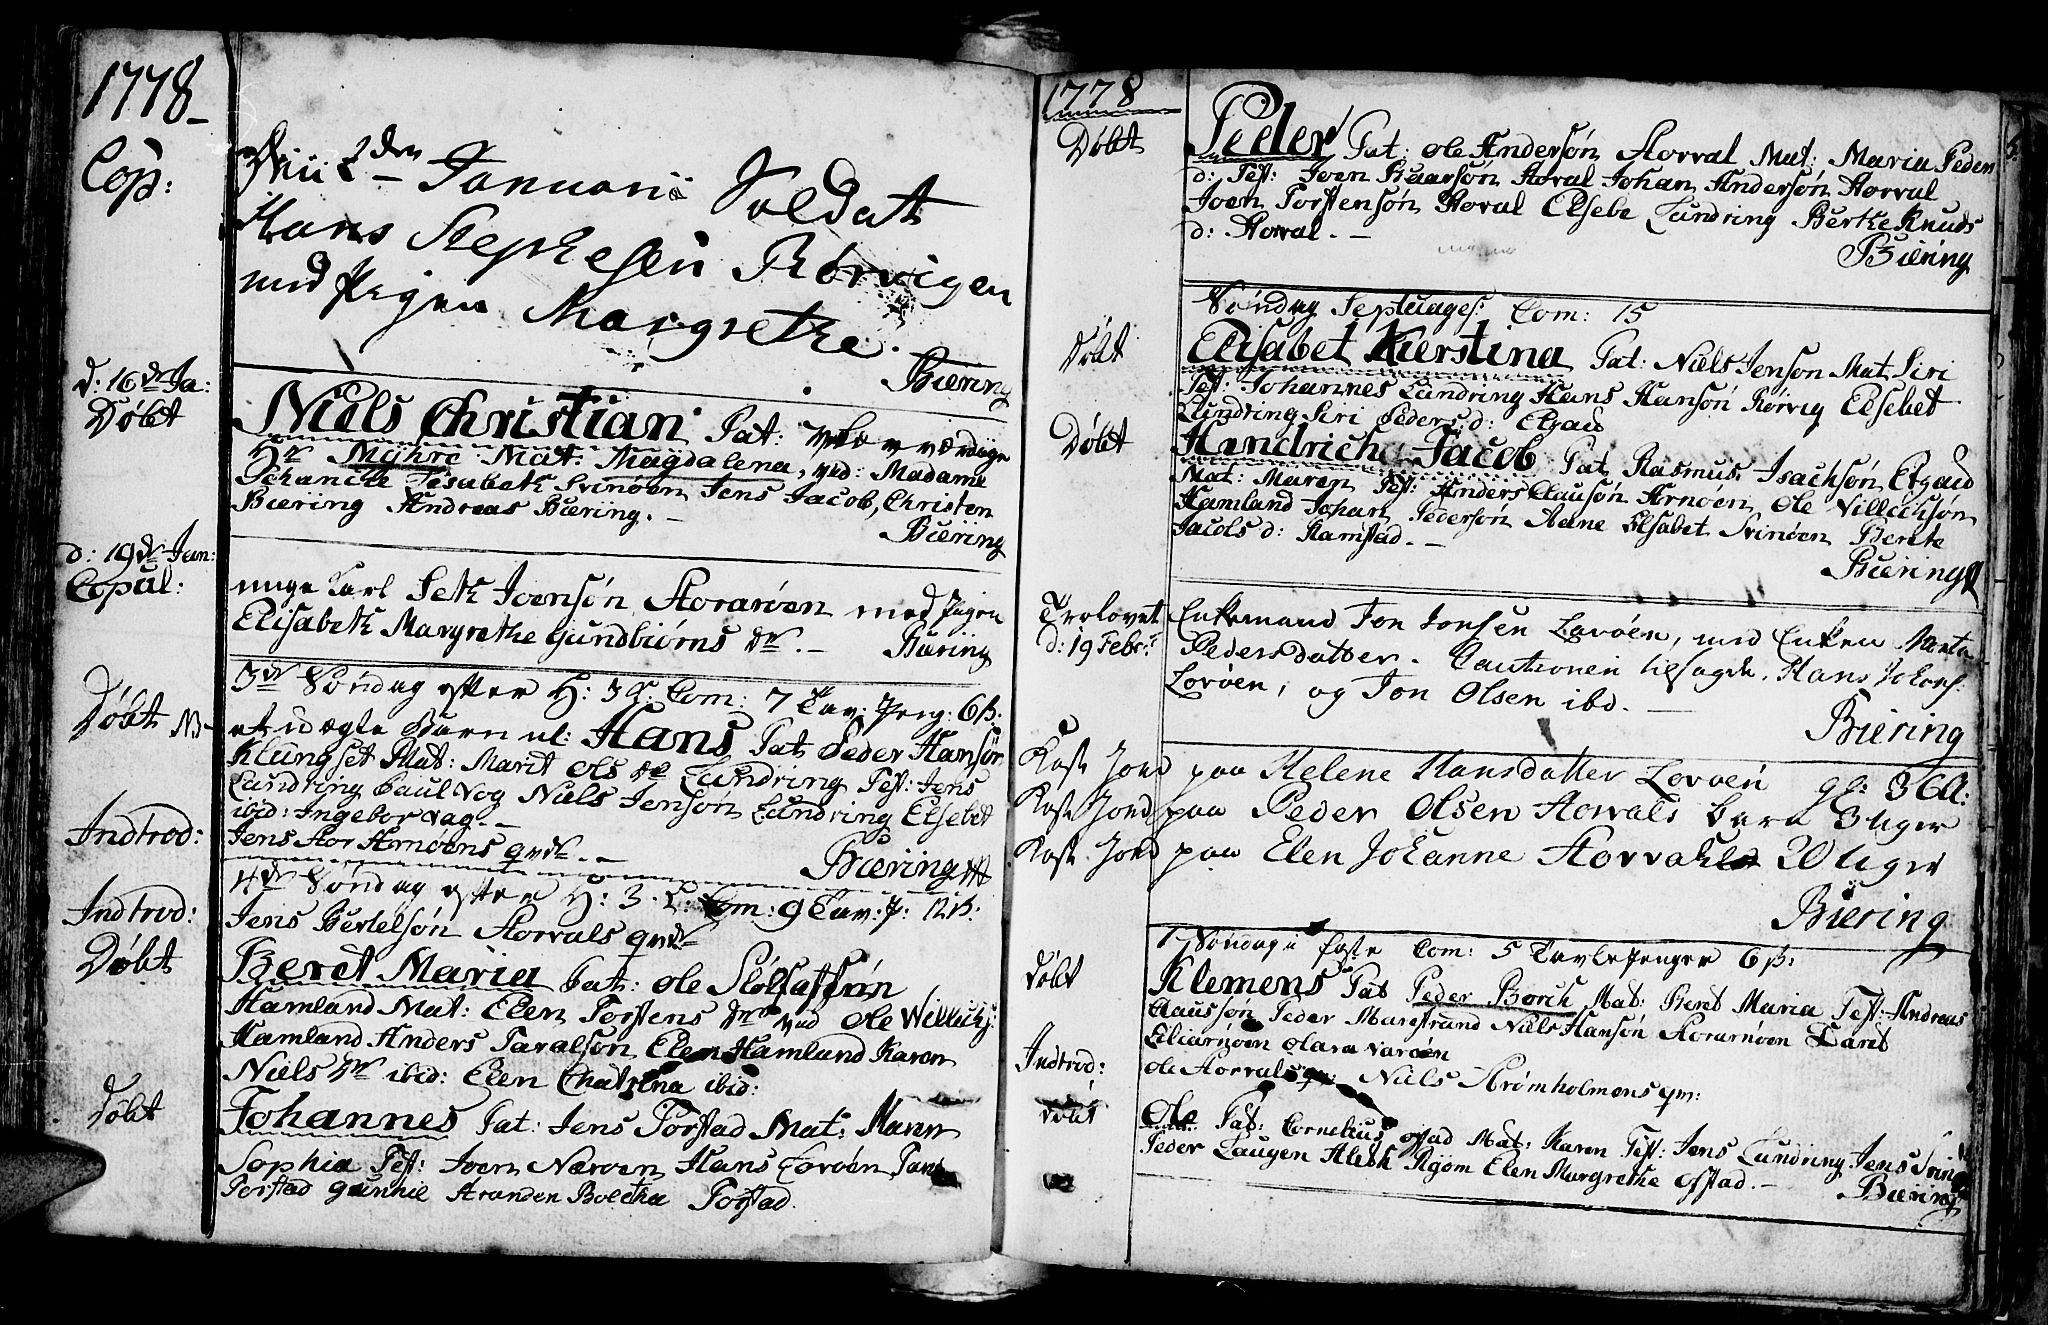 1778
Cop:
Den 2den Januarii Soldat
Hans Stephesen Rørvigen
med Pigen Margrethe.
Biering
d: 16de Ja:
Døbt
Niels Christian Pat: Vel ærværdige
Hr Myhre Mat: Magdalena, ved: Madame
Schancke Lisabeth Svinøen Jens Jacob, Christen
Biering Andreas Biering. –
Biering
d: 19de Jan:
Copul:
unge Karl Seth Joensøn Storarøen med Pigen
Elisabeth Margrethe Gundbiørns dr. –
Biering
3de Søndag efter H: 3K. Com: 7 Tav: Peng: 6ß.
Døbt NB
et uægte Barn nl: Hans Pat Peder Hansøn
Klungset Mat: Marit Ols dr Lundring Test: Jens
Lundring Paul Vog Niels Jensøn Lundring Elsebet
ibid: Ingebor Vag. –
Indtrod:
Jens Stor Arnøens qvde. –
Biering
4de Søndag efter H: 3. K: Com: 9 Tav: P: 12ß:
Indtrod:
Jens Bertelsøn Storvals qvde
Døbt
Beret Maria Pat: Ole
Hamland Mat: Elen Torstens dr ved Ole Willichs:
Hamland Anders Taralsøn Elen Hamland Karen
Niels dr ibid: Elen Chatrina ibid:
Døbt
Johannes Pat: Jens Torstad Mat: Karen
Sophia Test: Joen Nærøen Hans Lorøen
Torstad Gunnil Stranden Boletha Torstad.
1778
Døbt
Peder Pat: Ole Andersøn Storval Mat: Maria Peders
d: Test: Joen Baarsøn Storval Johan Andersøn Storval
Joen Torstensøn Storval Elsebe Lundring Berthe Knuds
d: Storval. –
Biering
Søndag Septuages: Com: 15
Døbt
Elisabet Kierstina Pat: Niels Jensøn Mat Siri
Test: Johannes Lundring Hans Hansøn Rørvig Elsebet
Lundring Siri Peders d: Elgaa
Døbt
Hendrich Jacob Pat Rasmus Isachsøn Elgaa
Mat: Maren Test: Anders Clausøn Arnøen, Ole Villichsøn
Hamland Johan Pedersøn Aane Elsabet Svinøen Berete
Jacobs d: Ramstad. –
Biering
Trolovet
d: 19 Febr:
Enkemand Jon Jonsen Lorøen, med Enken Marta
Pedersdatter. Cautionen besagde. Hans Johans:
Lorøen, og Jon Olsen ibd. –
Biering
Kast Jord paa Helene Hansdatter Lorøen gl: 3
Kast Jord paa Peder Olsen Storvals barn 3 Uger
Kast Jord paa Elen Johanne Storval 20 Uger
Biering
1 Søndag i Faste Com: 5 Tavle Penger 6ß:
Døbt
Klemens Pat Peder Borch Mat: Beret Maria Test: Andreas
Claussøn Peder Margstrand Niels Hansøn Storarnøen Karet
Eliarnøen Olara Varøen
Indtrod:
Ole Storvals qv: Niels Strømholmens qm:
Døbt
Ole Pat: Cornelius Ofstad Mat: Karen Test: Jens Lundring Jens
Peder Laugen Aleth Rgom Elen Margrethe Ofstad. –
Biering